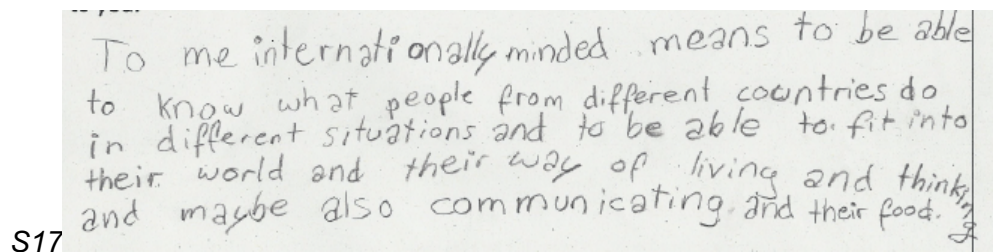 To me internationally minded means to be able
to know what people from different countries do
in different situations and to be able to fit into
their world and their way of living and thinking
and maybe also communicating and their food.
S17